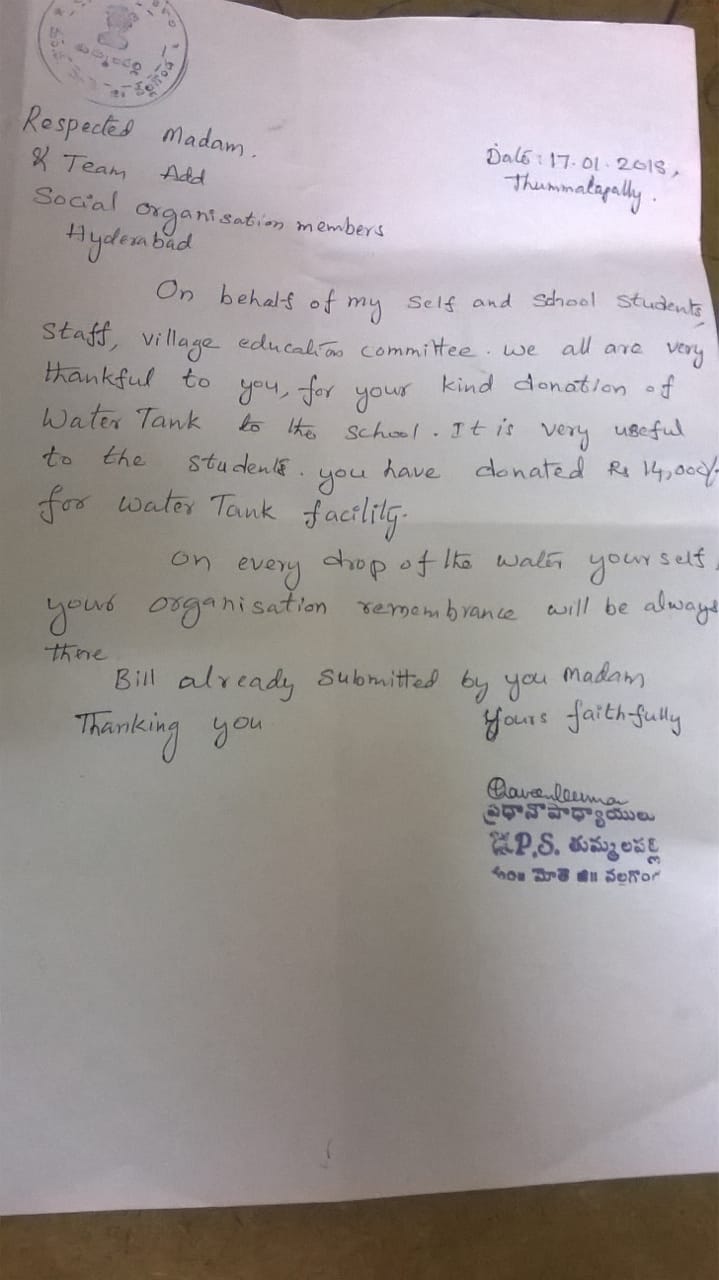 Respected Madam.
& Team Add
Date: 17.01.2018,
Thummalapally.
Social organisation members
Hyderabad
On behalf of my self and School Students,
Staff, village education committee. we all are very
thankful to you, for your kind donation of
Water Tank to the school. It is very useful
to the students. you have donated Rs 14,000/-
for water Tank facility.
on every drop of the water your self,
your organisation remembrance will be always
there
Bill already submitted by you madam
Thanking you
Yours faith-fully
ప్రధానోపాధ్యాయులు
P.S. తుమ్మలపల్లి
మం॥ మోతె జి॥ నల్లగొండ